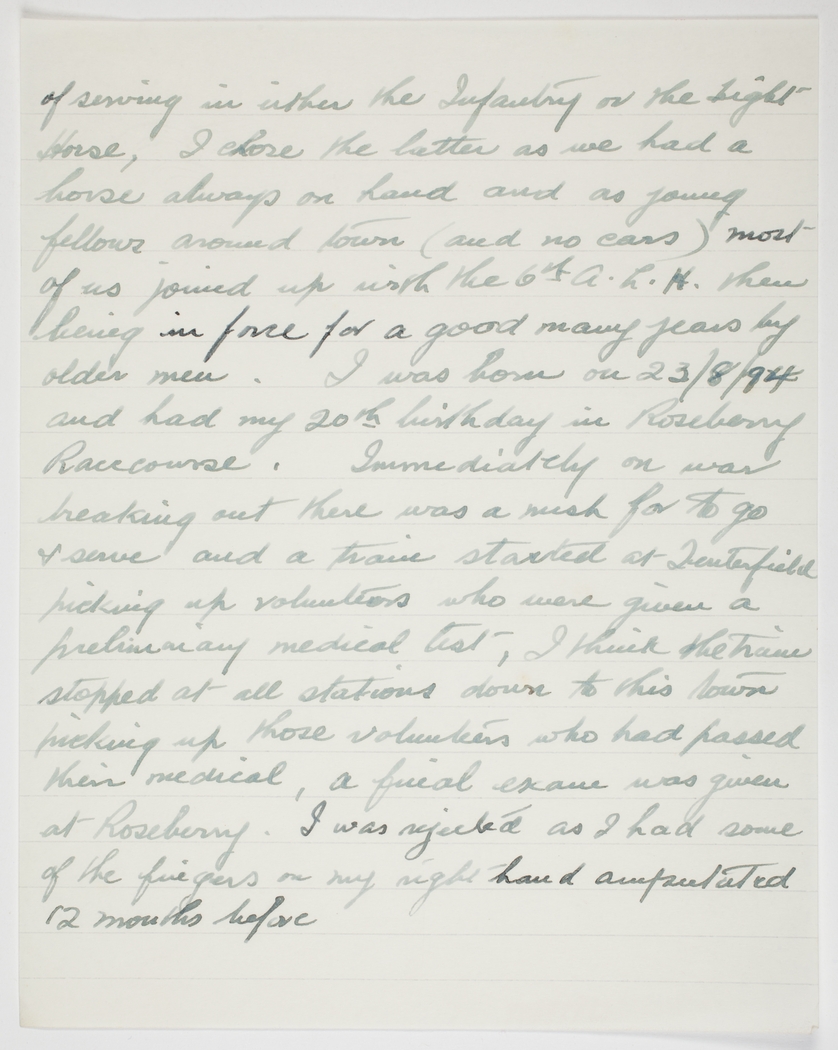 of serving in either the Infantry or the Light
Horse, I chose the latter as we had a
horse always on hand and as young
fellows around town (and no cars) most
of us joined up with the 6th A.L.H. then
being in force for a good many years by
older men. I was born on 23/8/94
and had my 20th birthday in Roseberry
Racecourse. Immediately on war
breaking out there was a rush for to go
& serve and a train started at Tenterfield
picking up volunteers who were given a
preliminary medical test, I think the train
stopped at all stations down to this town
picking up those volunteers who had passed
their medical, a final exam was given
at Roseberry. I was rejected as I had some
of the fingers on my right hand amputated
12 months before